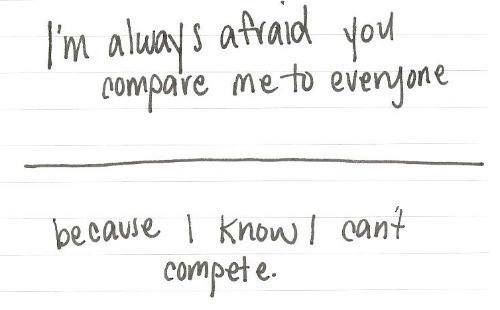 I'm always afraid you
compare me to everyone
because I know I can't
compete.